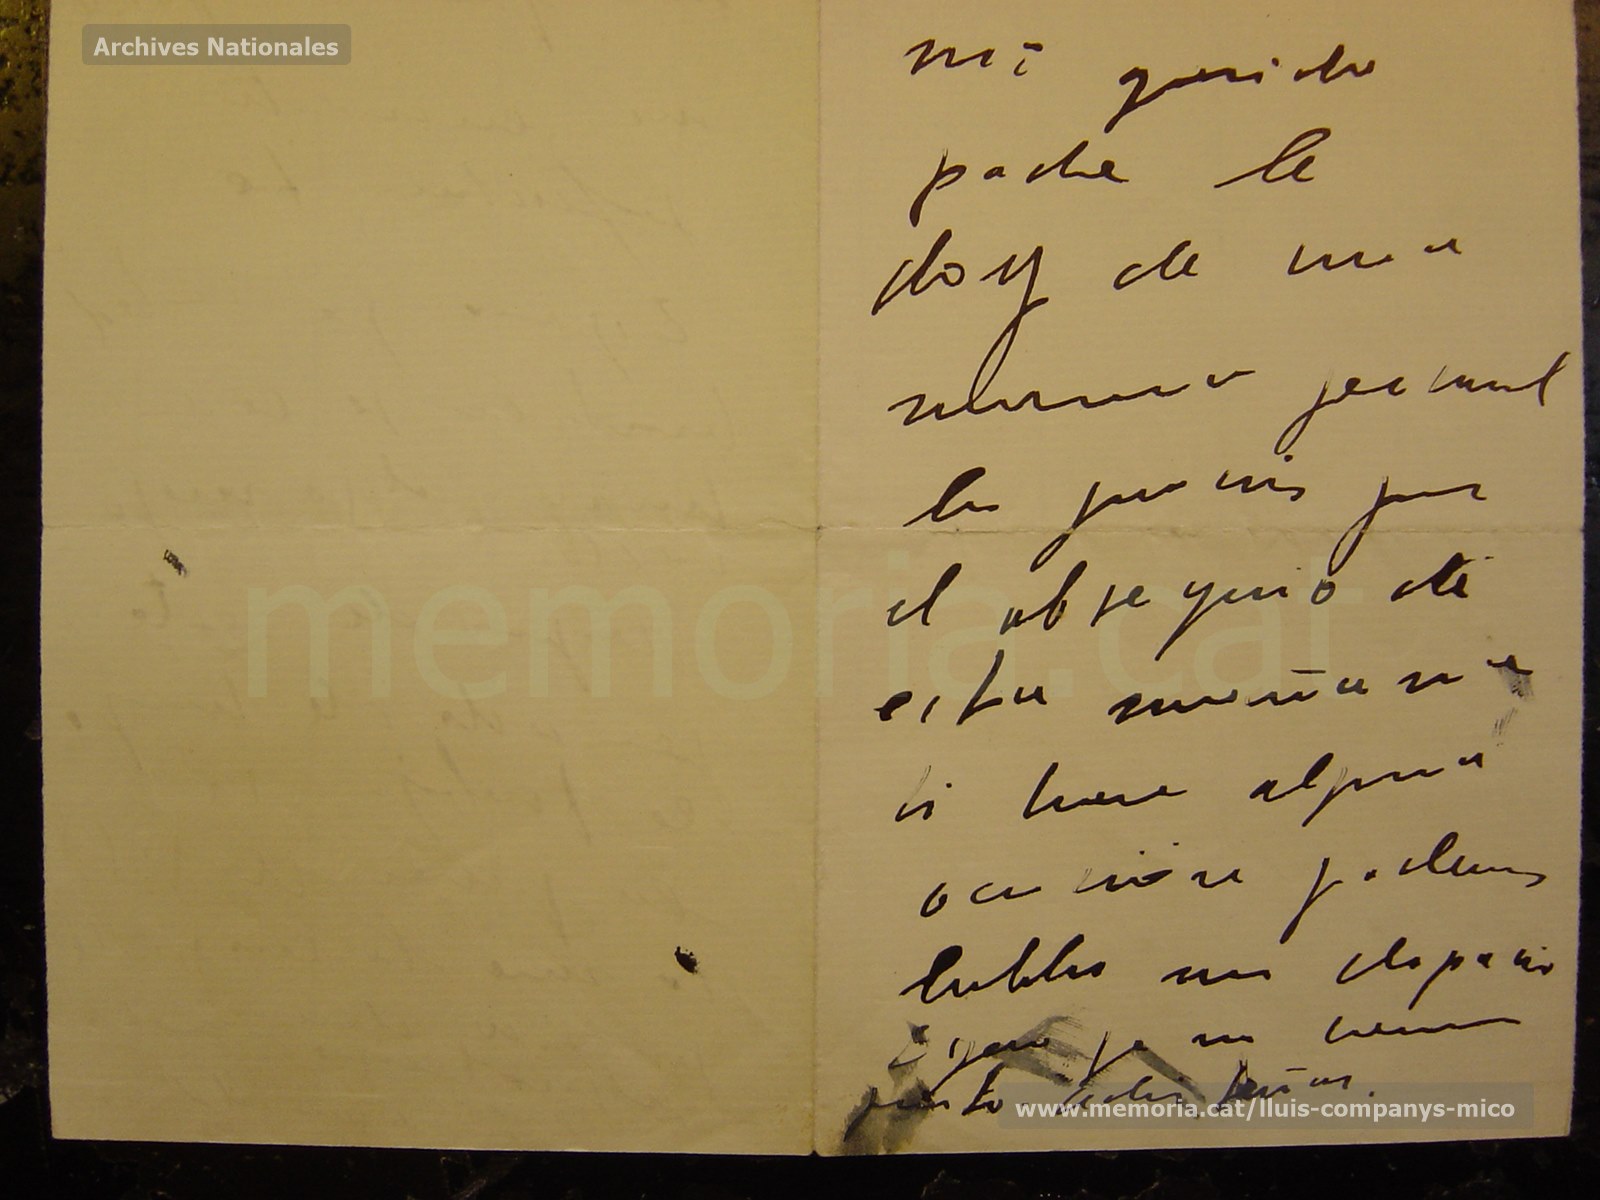 Archives Nationales
mi querido
padre le
doy de una
manera personal
las gracias por
el obsequio de
esta mañana
si tiene alguna
ocasión podemos
hablar mas despacio
pero ya no tenemos
www.memoria.cat/lluis-companys-mico
memoria.cat